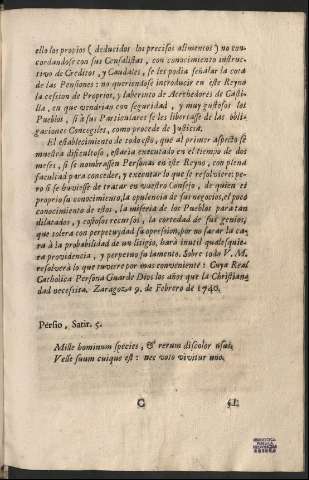 ello los propios (deducidos los precisos alimentos) no con-
cordandose con sus Censalistas, con conocimiento instruc-
tivo de Creditos, y Caudales, se les podia señalar la cota
de las Pensiones: no queriendose introducir en este Reyno
la cesion de Proprios, y laberinto de Acrehedores de Casti-
lla, en que vendrian con seguridad, y muy gustosos los
Pueblos, si à sus Particulares se les libertasse de las obli-
gaciones Concegiles, como procede de Justicia.
El establecimiento de todo esto, que al primer aspecto se
muestra dificultoso, estaria executado en el tiempo de dos
meses, si se nombrassen Personas en este Reyno, con plena
facultad para conceder, y executar lo que se resolviere: pe-
ro si se huviesse de tratar en vuestro Consejo, de quien es
proprio su conocimiento, la opulencia de sus negocios, el poco
conocimiento de estos, la miseria de los Pueblos para tan
dilatados, y costosos recursos, la cortedad de sus genios,
que tolera con perpetuydad su opresion, por no sacar la ca-
ra à la probabilidad de un litigio, harà inutil qualesquie-
ra providencia, y perpetuo su lamento. Sobre todo V. M.
resolverà lo que tuviere por mas conveniente: Cuya Real
Catholica Persona Guarde Dios los años que la Christian-
dad necessita. Zaragoza 9. de Febrero de 1740.
Persio, Satir. 5.
Mille hominum species, & rerum discolor usus,
Velle suum cuique est: nec voto vivitur uno.
C